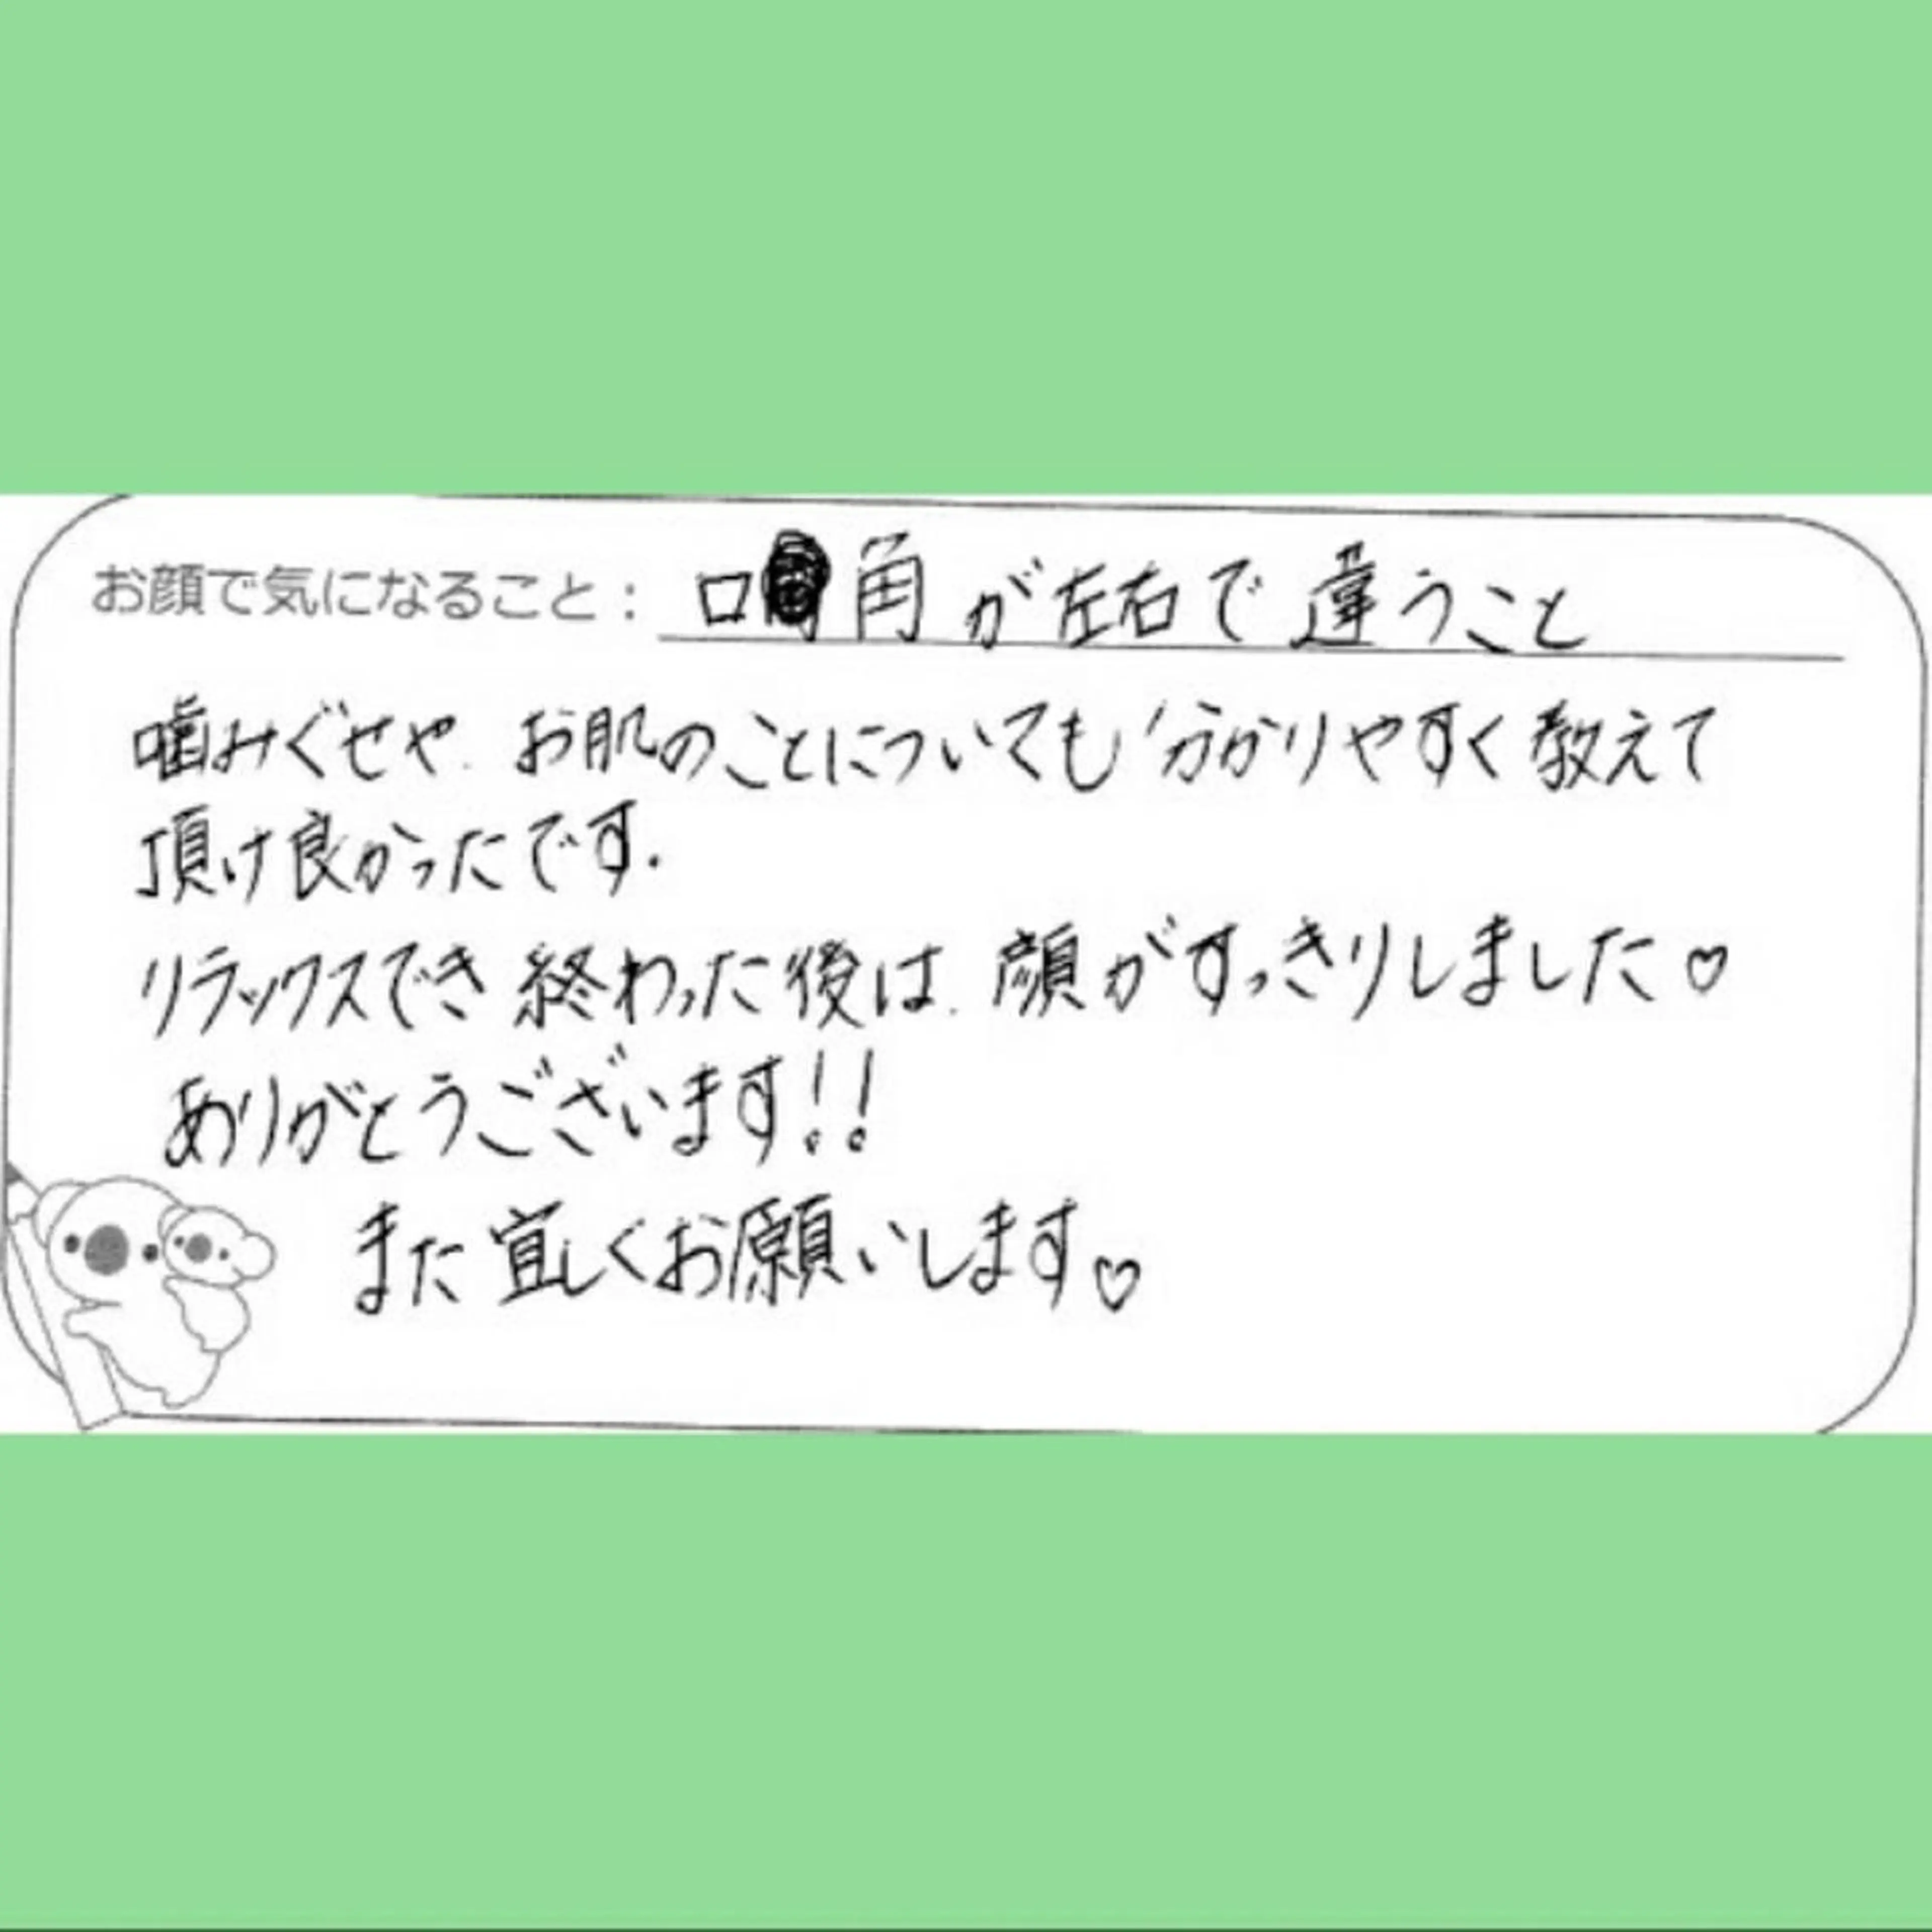 お顔で気になること： 口角が左右で違うこと
噛みぐせや、お肌のことについても分かりやすく教えて
頂け良かったです。
リラックスでき終わった後は、顔がすっきりしました♡
ありがとうございます!!
また宜しくお願いします♡